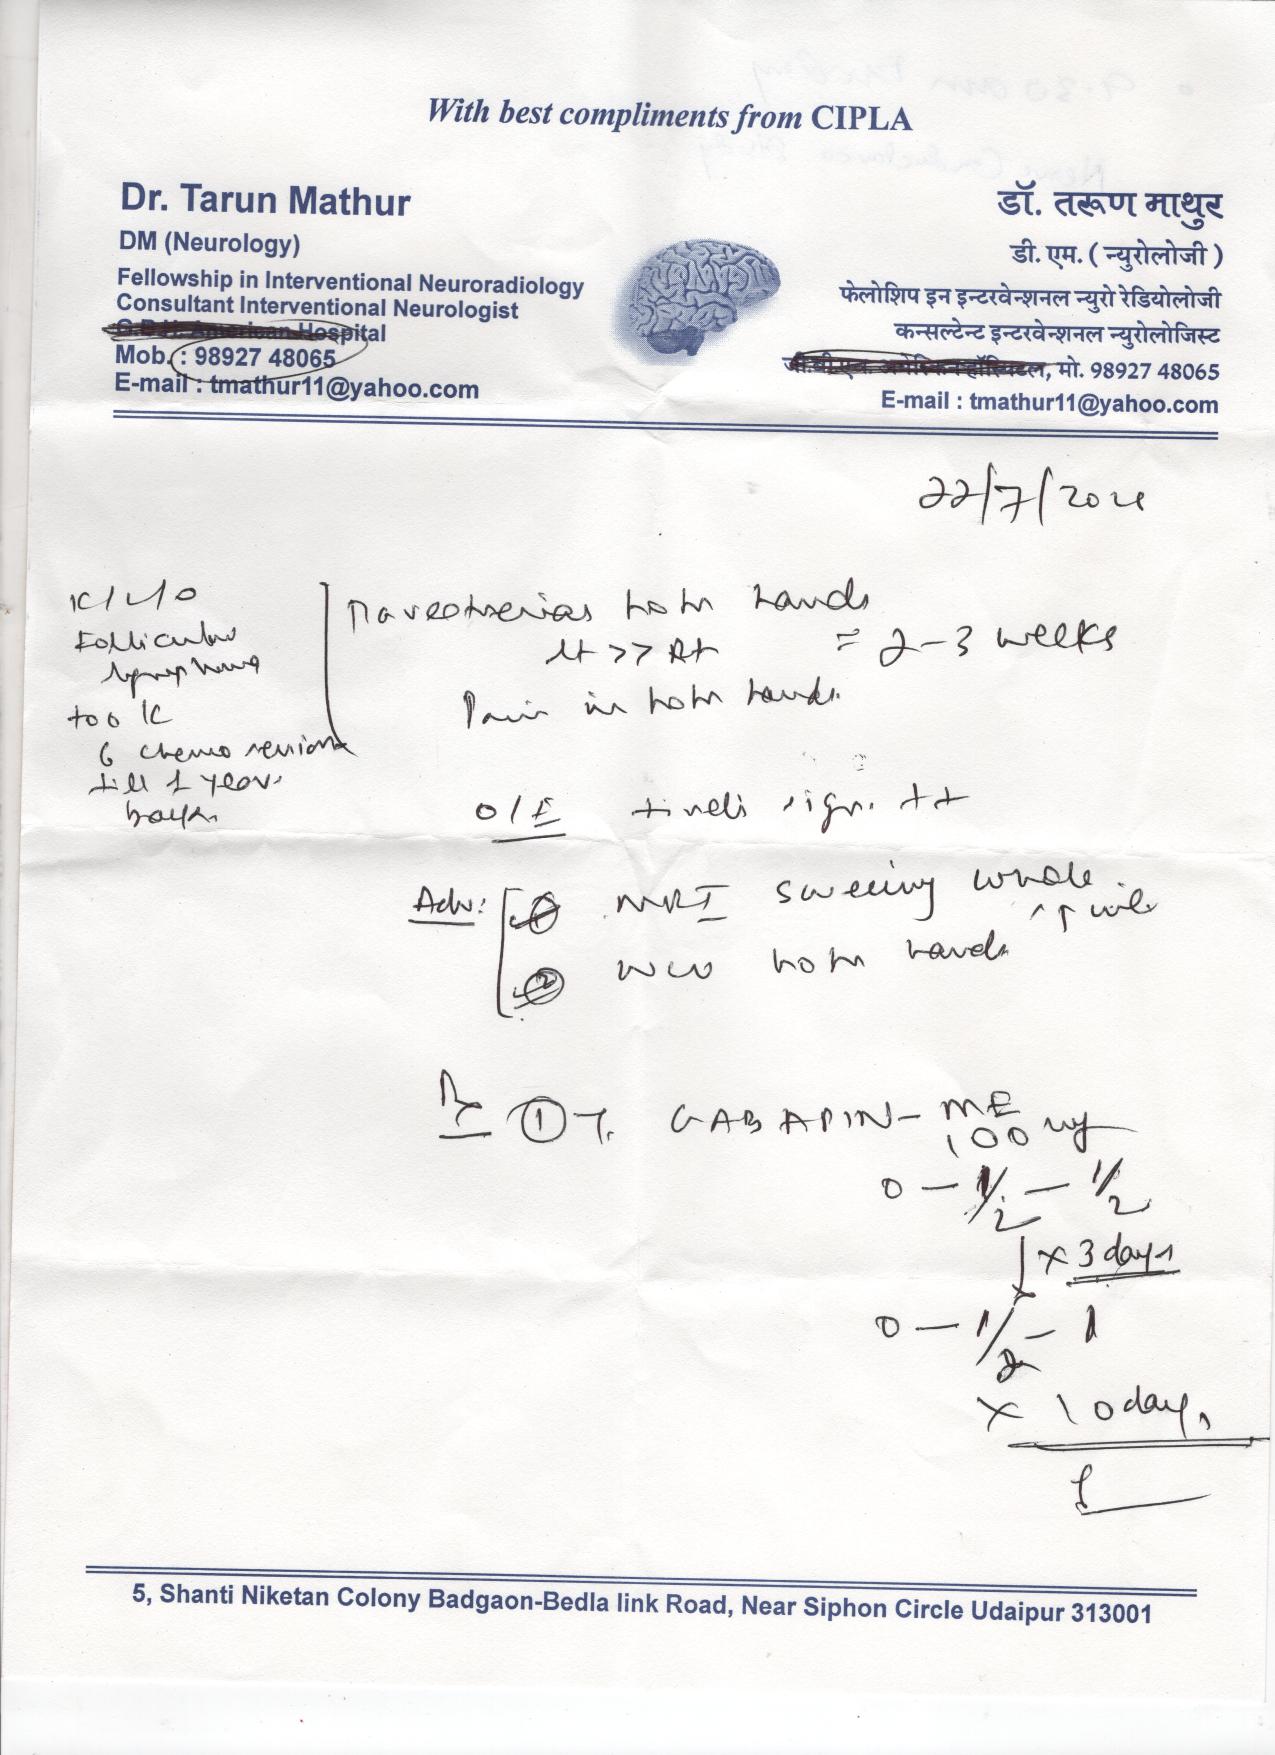 With best compliments from CIPLA
Dr. Tarun Mathur
DM (Neurology)
Fellowship in Interventional Neuroradiology
Consultant Interventional Neurologist
G.B.H. American Hospital
Mob. : 98927 48065
E-mail : tmathur11@yahoo.com
डॉ. तरूण माथुर
डी. एम. ( न्युरोलोजी )
फेलोशिप इन इन्टरवेन्शनल न्युरो रेडियोलोजी
कन्सल्टेन्ट इन्टरवेन्शनल न्युरोलोजिस्ट
जी.बी.एच. अमेरिकन हॉस्पिटल, मो. 98927 48065
E-mail : tmathur11@yahoo.com
22/7/2021
K/C/O
Follicular
lymphoma
took
6 chemo sessions
till 1 year
back
Paresthesias both hands
Lt >> Rt = 2-3 weeks
Pain in both hands
O/E tinel's sign ++
Adv: 1 MRI screening whole
spine
2 both hands
Rx 1 T. GABAPIN-ME
100 mg
0 - 1/2 - 1/2
x 3 days
0 - 1/2 - 1
x 10 days
5, Shanti Niketan Colony Badgaon-Bedla link Road, Near Siphon Circle Udaipur 313001